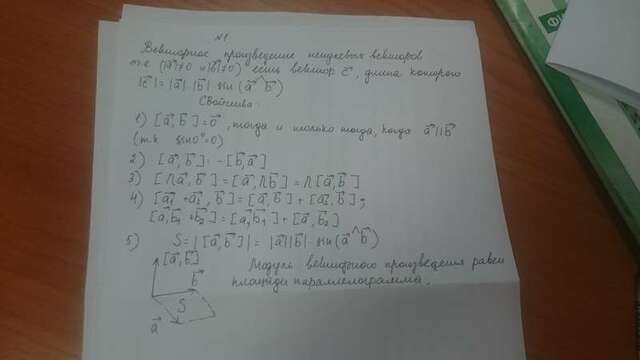 №1
Векторное произведение ненулевых векторов
т.е (|a⃗|≠0 и |b⃗|≠0) есть вектор c⃗, длина которого
|c⃗| = |a⃗|·|b⃗| sin(a⃗^b⃗)
Свойства:
1) [a⃗, b⃗] = 0⃗, тогда и только тогда, когда a⃗||b⃗
(т.к sin0°=0)
2) [a⃗, b⃗] = -[b⃗, a⃗]
3) [λa⃗, b⃗] = [a⃗, λb⃗] = λ[a⃗, b⃗]
4) [a⃗₁ + a⃗₂, b⃗] = [a⃗₁, b⃗] + [a⃗₂, b⃗];
[a⃗, b⃗₁ + b⃗₂] = [a⃗, b⃗₁] + [a⃗, b⃗₂]
5) S = |[a⃗, b⃗]| = |a⃗||b⃗|·sin(a⃗^b⃗)
[a⃗, b⃗]
b⃗
S
a⃗
Модуль векторного произведения равен
площади параллелограмма.